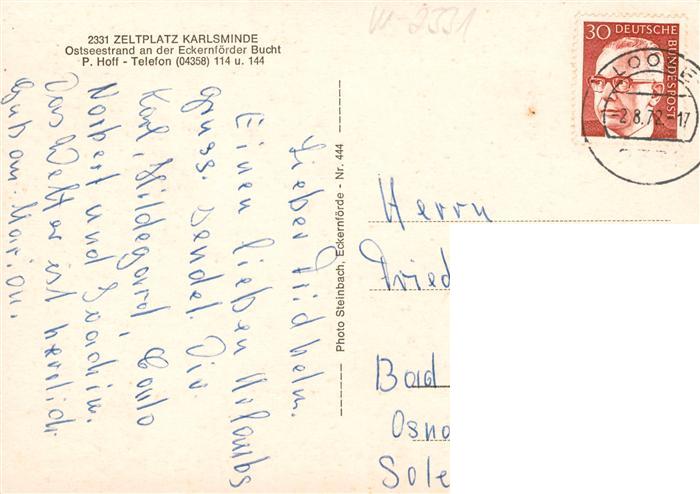 W-2331
2331 ZELTPLATZ KARLSMINDE
Ostseestrand an der Eckernförder Bucht
P. Hoff - Telefon (04358) 114 u. 144
30 DEUTSCHE BUNDESPOST
2.8.72-17
Lieber Fridhelm.
Einen lieben Urlaubs
gruss. sendel. Dir
Karl, Hildegard,
Norbert und
Das Wetter ist herrlich
Gut am
Photo Steinbach, Eckernförde - Nr. 444
Herrn
Fried
Bad
Osna
Sole